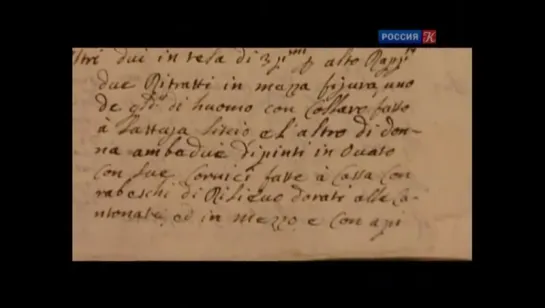 РОССИЯ К
ltri dui in tela di 3 p.mi p alto Rapp.ti
due Ritratti in mezza figura, uno
de q.li di huomo con Collaro fatto
à lattuga liscio e l'altro di don-
na ambadue dipinti in ovato
con sue Cornici fatte à Cassa con
rabeschi di Rilievo dorati alle Ca-
ntonate, ed in mezzo, e con api